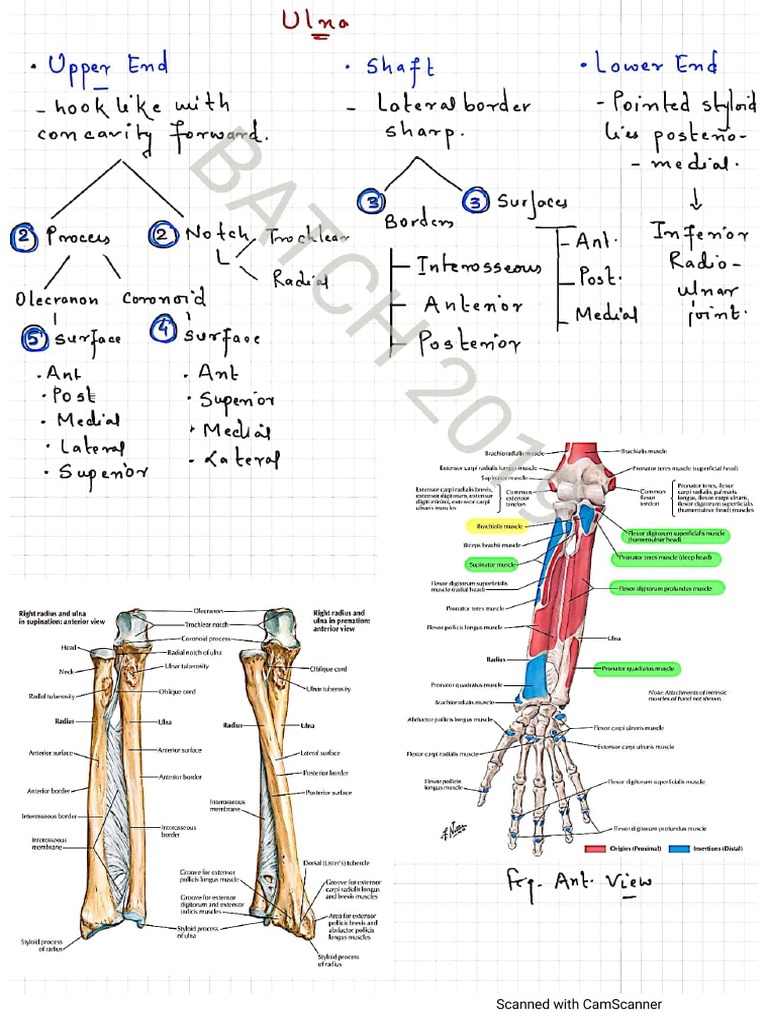 Ulna
• Upper End
- hook like with
concavity forward.
② Process
Olecranon
⑤ Surface
• Ant
• Post
• Medial
• Lateral
• Superior
Coronoid
④ Surface
• Ant
• Superior
• Medial
- Lateral
② Notch
Trochlear
Radial
• Shaft
- Lateral border
sharp.
③ Borders
Interosseous
Anterior
Posterior
③ Surfaces
Ant.
Post.
Medial
• Lower End
- Pointed styloid
lies posterio-
- medial.
↓
Inferior
Radio-
ulnar
joint.
BATCH 2019
Brachioradialis muscle
Extensor carpi radialis longus muscle
Supinator muscle
Extensor carpi radialis brevis,
extensor digitorum, extensor
digiti minimi, extensor carpi
ulnaris muscles
Common
extensor
tendon
Brachialis muscle
Biceps brachii muscle
Supinator muscle
Flexor digitorum superficialis
muscle (radial head)
Pronator teres muscle
Flexor pollicis longus muscle
Radius
Pronator quadratus muscle
Brachioradialis muscle
Abductor pollicis longus muscle
Flexor carpi radialis muscle
Flexor pollicis
longus muscle
Brachialis muscle
Pronator teres muscle (superficial head)
Common
flexor
tendon
Pronator teres, flexor
carpi radialis, palmaris
longus, flexor carpi ulnaris,
flexor digitorum superficialis
(humeroulnar head) muscles
Flexor digitorum superficialis muscle
(humeroulnar head)
Pronator teres muscle (deep head)
Flexor digitorum profundus muscle
Ulna
Pronator quadratus muscle
Note: Attachments of intrinsic
muscles of hand not shown.
Flexor carpi ulnaris muscle
Extensor carpi ulnaris muscle
Flexor digitorum superficialis muscle
Flexor digitorum profundus muscle
Origins (Proximal)
Insertions (Distal)
Fig. Ant. View
Right radius and ulna
in supination: anterior view
Olecranon
Trochlear notch
Coronoid process
Head
Radial notch of ulna
Ulnar tuberosity
Neck
Radial tuberosity
Oblique cord
Radius
Ulna
Anterior surface
Anterior surface
Anterior border
Anterior border
Interosseous border
Interosseous
border
Interosseous
membrane
Styloid process
of radius
Styloid process
of ulna
Right radius and
ulna in pronation:
anterior view
Oblique cord
Ulnar tuberosity
Radius
Ulna
Lateral surface
Posterior border
Posterior surface
Interosseous
membrane
Dorsal (Lister's) tubercle
Groove for extensor
pollicis longus muscle
Groove for extensor
carpi radialis longus
and brevis muscles
Groove for extensor
digitorum and extensor
indicis muscles
Area for extensor
pollicis brevis and
abductor pollicis
longus muscles
Styloid process
of radius
Scanned with CamScanner